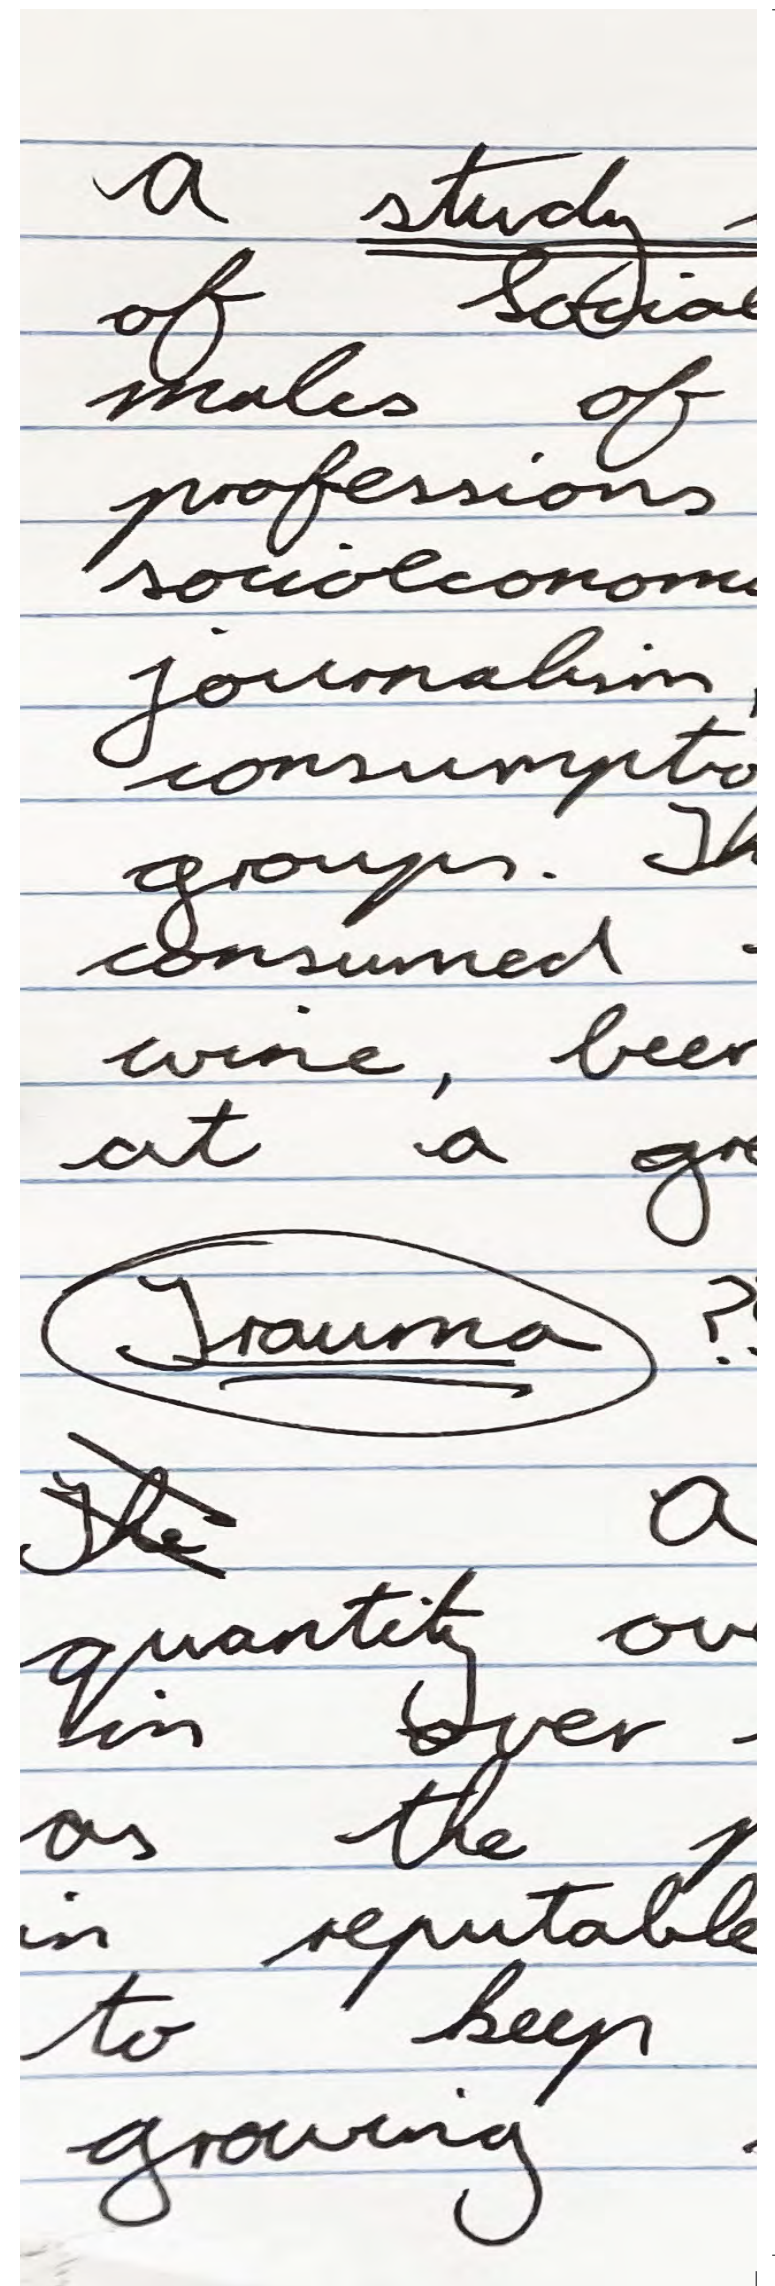 a study
of Social
males of
professions
socioeconom
journalism,
consumptio
groups. Th
consumed
wine, beer
at a gre
Trauma ??
The a
quantity ov
in over
as the p
in reputable
to keep
growing